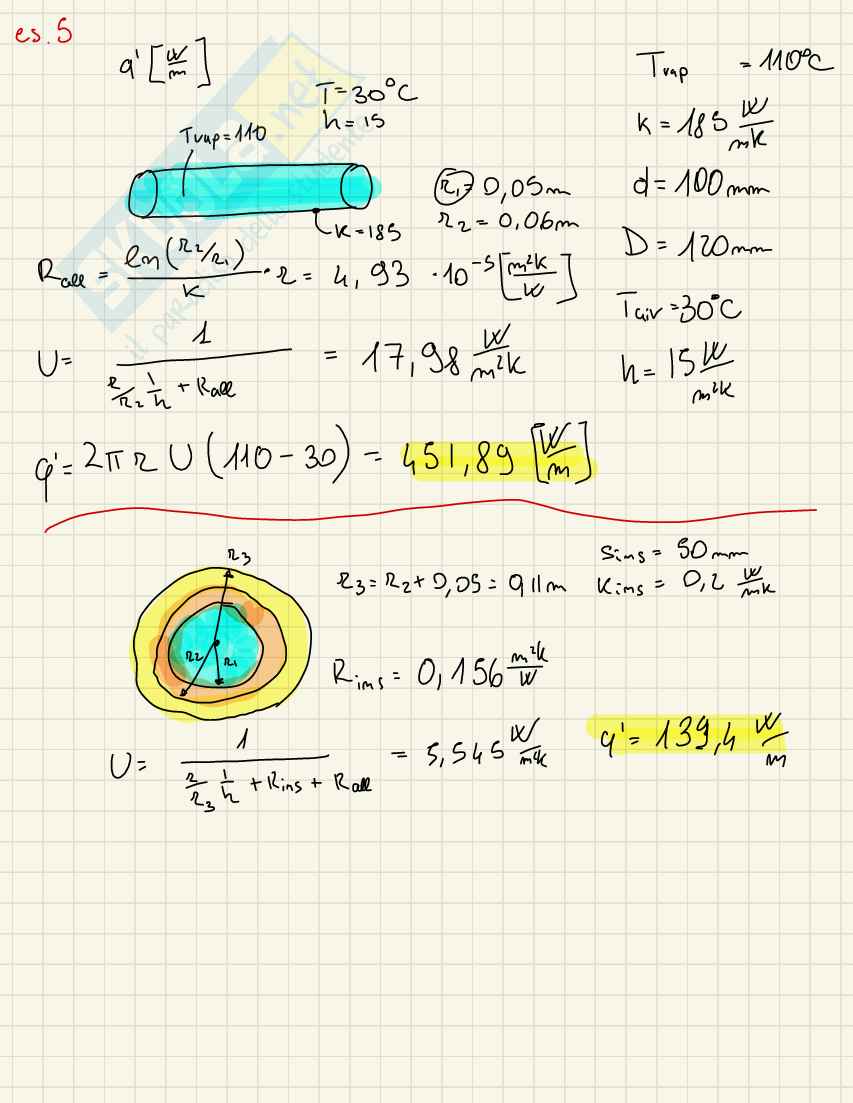 es. 5
q' [W/m]
T = 30°C
h = 15
Tvap = 110
K = 185
r₁ = 0,05 m
r₂ = 0,06 m
Tvap = 110°C
K = 185 W/mK
d = 100 mm
D = 120 mm
Tair = 30°C
h = 15 W/m²K
Rall = ln(r₂/r₁)/K · r = 4,93 · 10⁻⁵ [m²K/W]
U = 1/(r/r₂ 1/h + Rall) = 17,98 W/m²K
q' = 2π r U (110 - 30) = 451,89 [W/m]
r₃
r₂
r₁
r₃ = r₂ + 0,05 = 0,11 m
sins = 50 mm
Kins = 0,2 W/mK
Rins = 0,156 m²K/W
U = 1/(r/r₃ 1/h + Rins + Rall) = 5,545 W/m²K
q' = 139,4 W/m